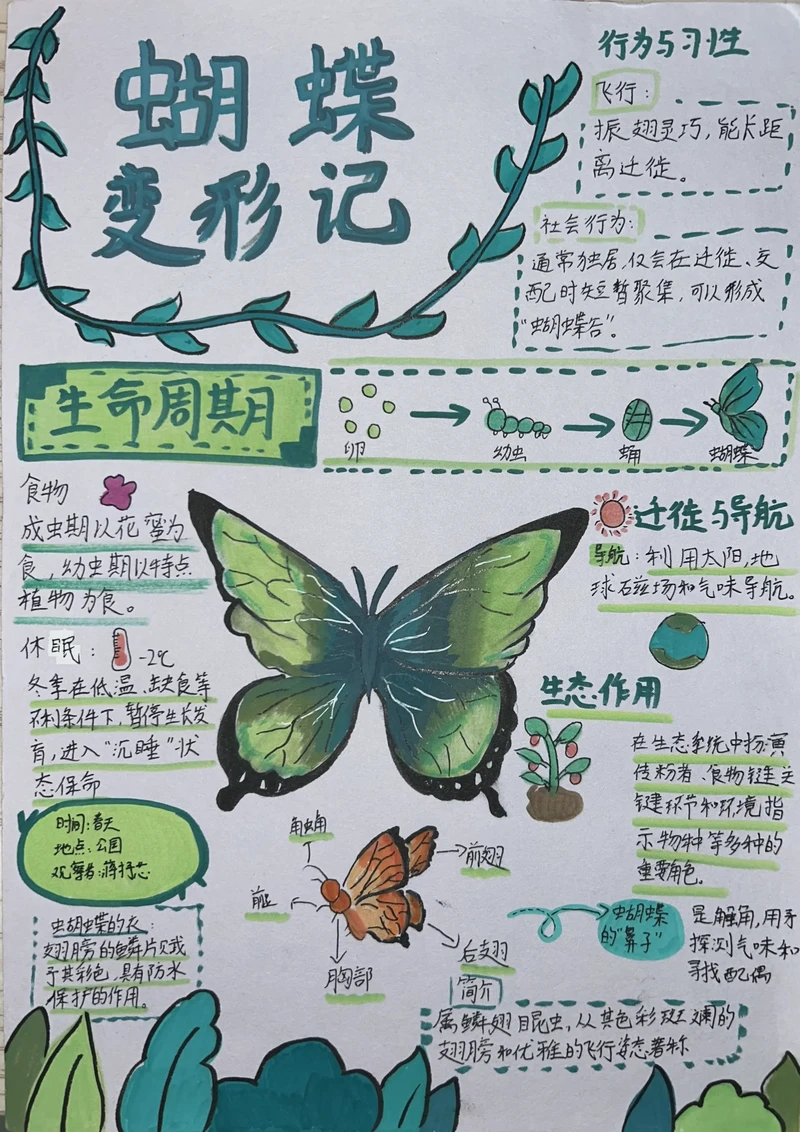 蝴蝶
变形记
行为与习性
飞行：
振翅灵巧，能长距
离迁徙。
社会行为：
通常独居，仅会在迁徙、交
配时短暂聚集，可以形成
“蝴蝶谷”。
生命周期
卵
幼虫
蛹
蝴蝶
食物
成虫期以花蜜为
食，幼虫期以特点
植物为食。
休眠：
-2℃
冬季在低温、缺食等
不利条件下，暂停生长发
育，进入“沉睡”状
态保命
迁徙与导航
导航：利用太阳，地
球磁场和气味导航。
生态作用
在生态系统中扮演
传粉者、食物链关
键环节和环境指
示物种等多种的
重要角色。
时间：春天
地点：公园
观察者：蒋抒芯
蝴蝶的衣：
翅膀的鳞片赋
予其彩色，具有防水
保护的作用。
触角
前翅
前足
胸部
后翅
蝴蝶
的“鼻子”
是触角，用于
探测气味和
寻找配偶
简介
属鳞翅目昆虫，从其色彩斑斓的
翅膀和优雅的飞行姿态著称